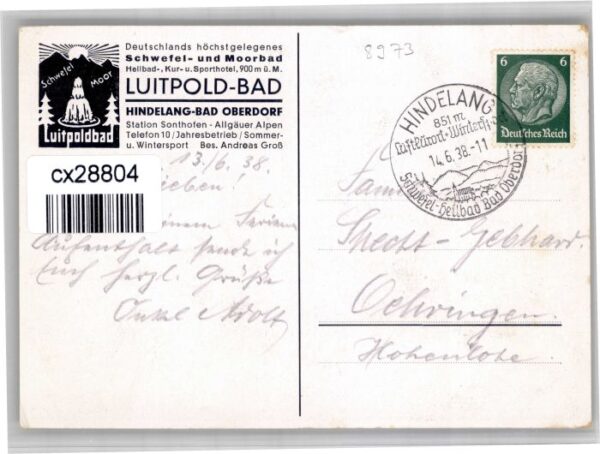 Deutschlands höchstgelegenes
Schwefel- und Moorbad
Heilbad-, Kur- u. Sporthotel, 900 m ü. M.
LUITPOLD-BAD
HINDELANG-BAD OBERDORF
Station Sonthofen - Allgäuer Alpen
Telefon 10 / Jahresbetrieb / Sommer-
u. Wintersport Bes. Andreas Groß
Schwefel Moor
Luitpoldbad
cx28804
13./6. 38.
Lieben!
meinem Ferien
Aufenthalt sende ich
Euch herzl. Grüße
Onkel Adolf
8973
6 6
Deutsches Reich
HINDELANG
851 m
Luftkurort - Wintersp
14.6.38.-11
Schwefel-Heilbad Bad Oberdorf
Specht-Gebhard.
Oehringen.
Hohenlohe.